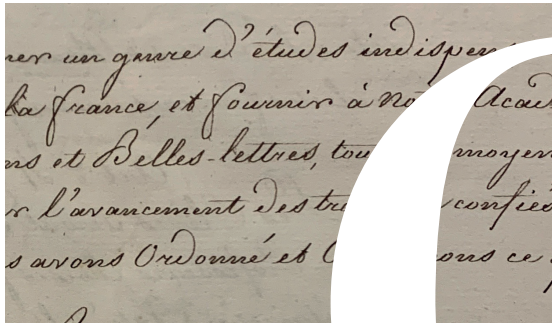 ner un genre d'études indispens
la France, et fournir à No Acad
ns et Belles-lettres, tou moyen
r l'avancement des tr confiés
s avons Ordonné et O ons ce